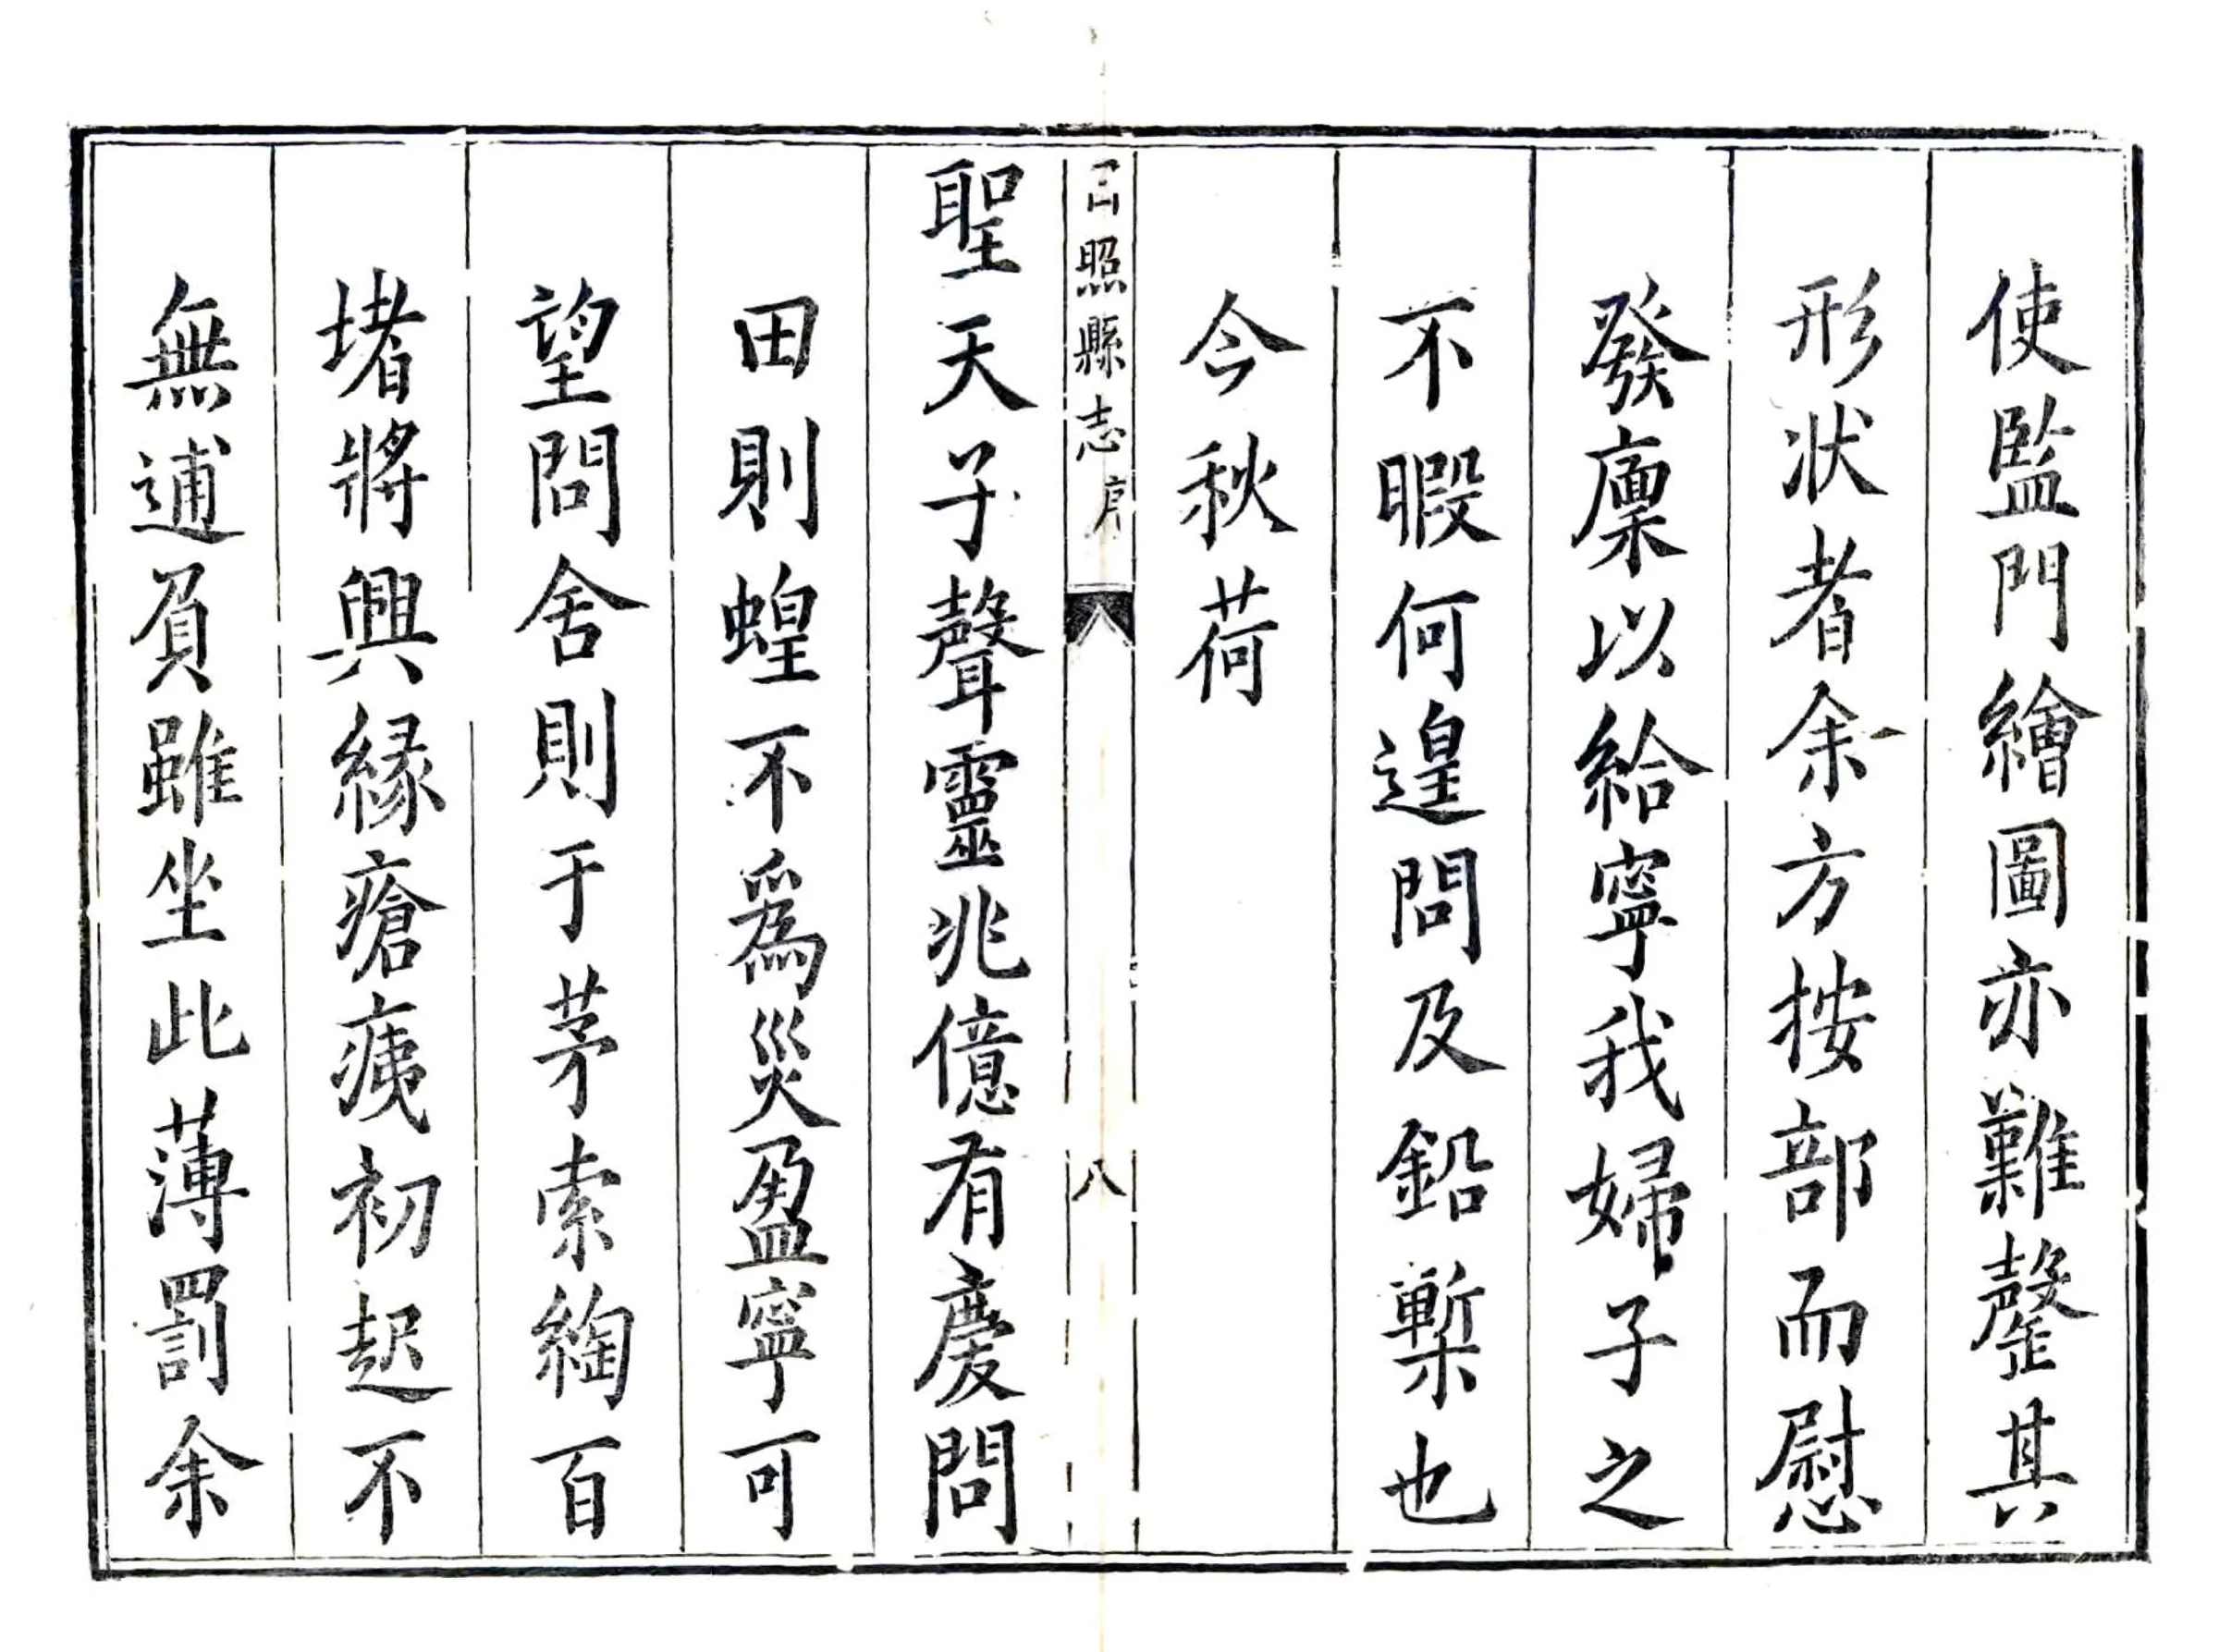 使監門繪圖亦難罄其
形狀者余方按部而慰
發廩以給寧我婦子之
不暇何遑問及鉛槧也
今秋荷
日照縣志 序 八
聖天子聲靈兆億有慶問
田則蝗不爲災盈寧可
望問舍則于茅索綯百
堵將興緣瘡痍初起不
無逋負雖坐此薄罰余